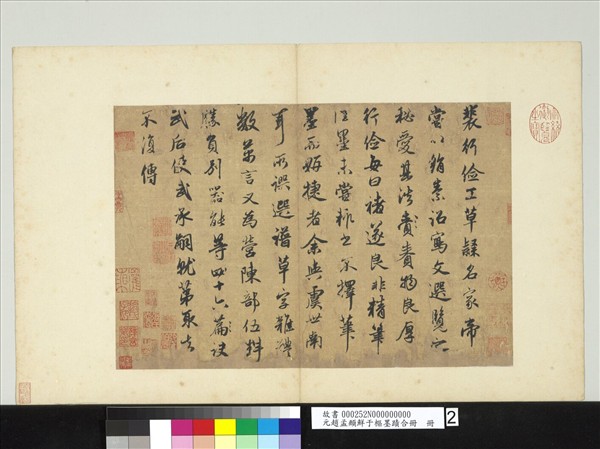 裴行儉工草隸名家帝
嘗以絹素詔寫文選覽之
秘愛其法賚物良厚
行儉每曰褚遂良非精筆
佳墨未嘗輒書不擇筆
墨而妍捷者余與虞世南
耳所譔選譜草字雜體
數萬言又為營陳部伍料
勝負別器能等四十六篇訣
武后使武承嗣就第取去
不復傳
故書 000252N000000000
元趙孟頫鮮于樞墨蹟合冊 冊
2